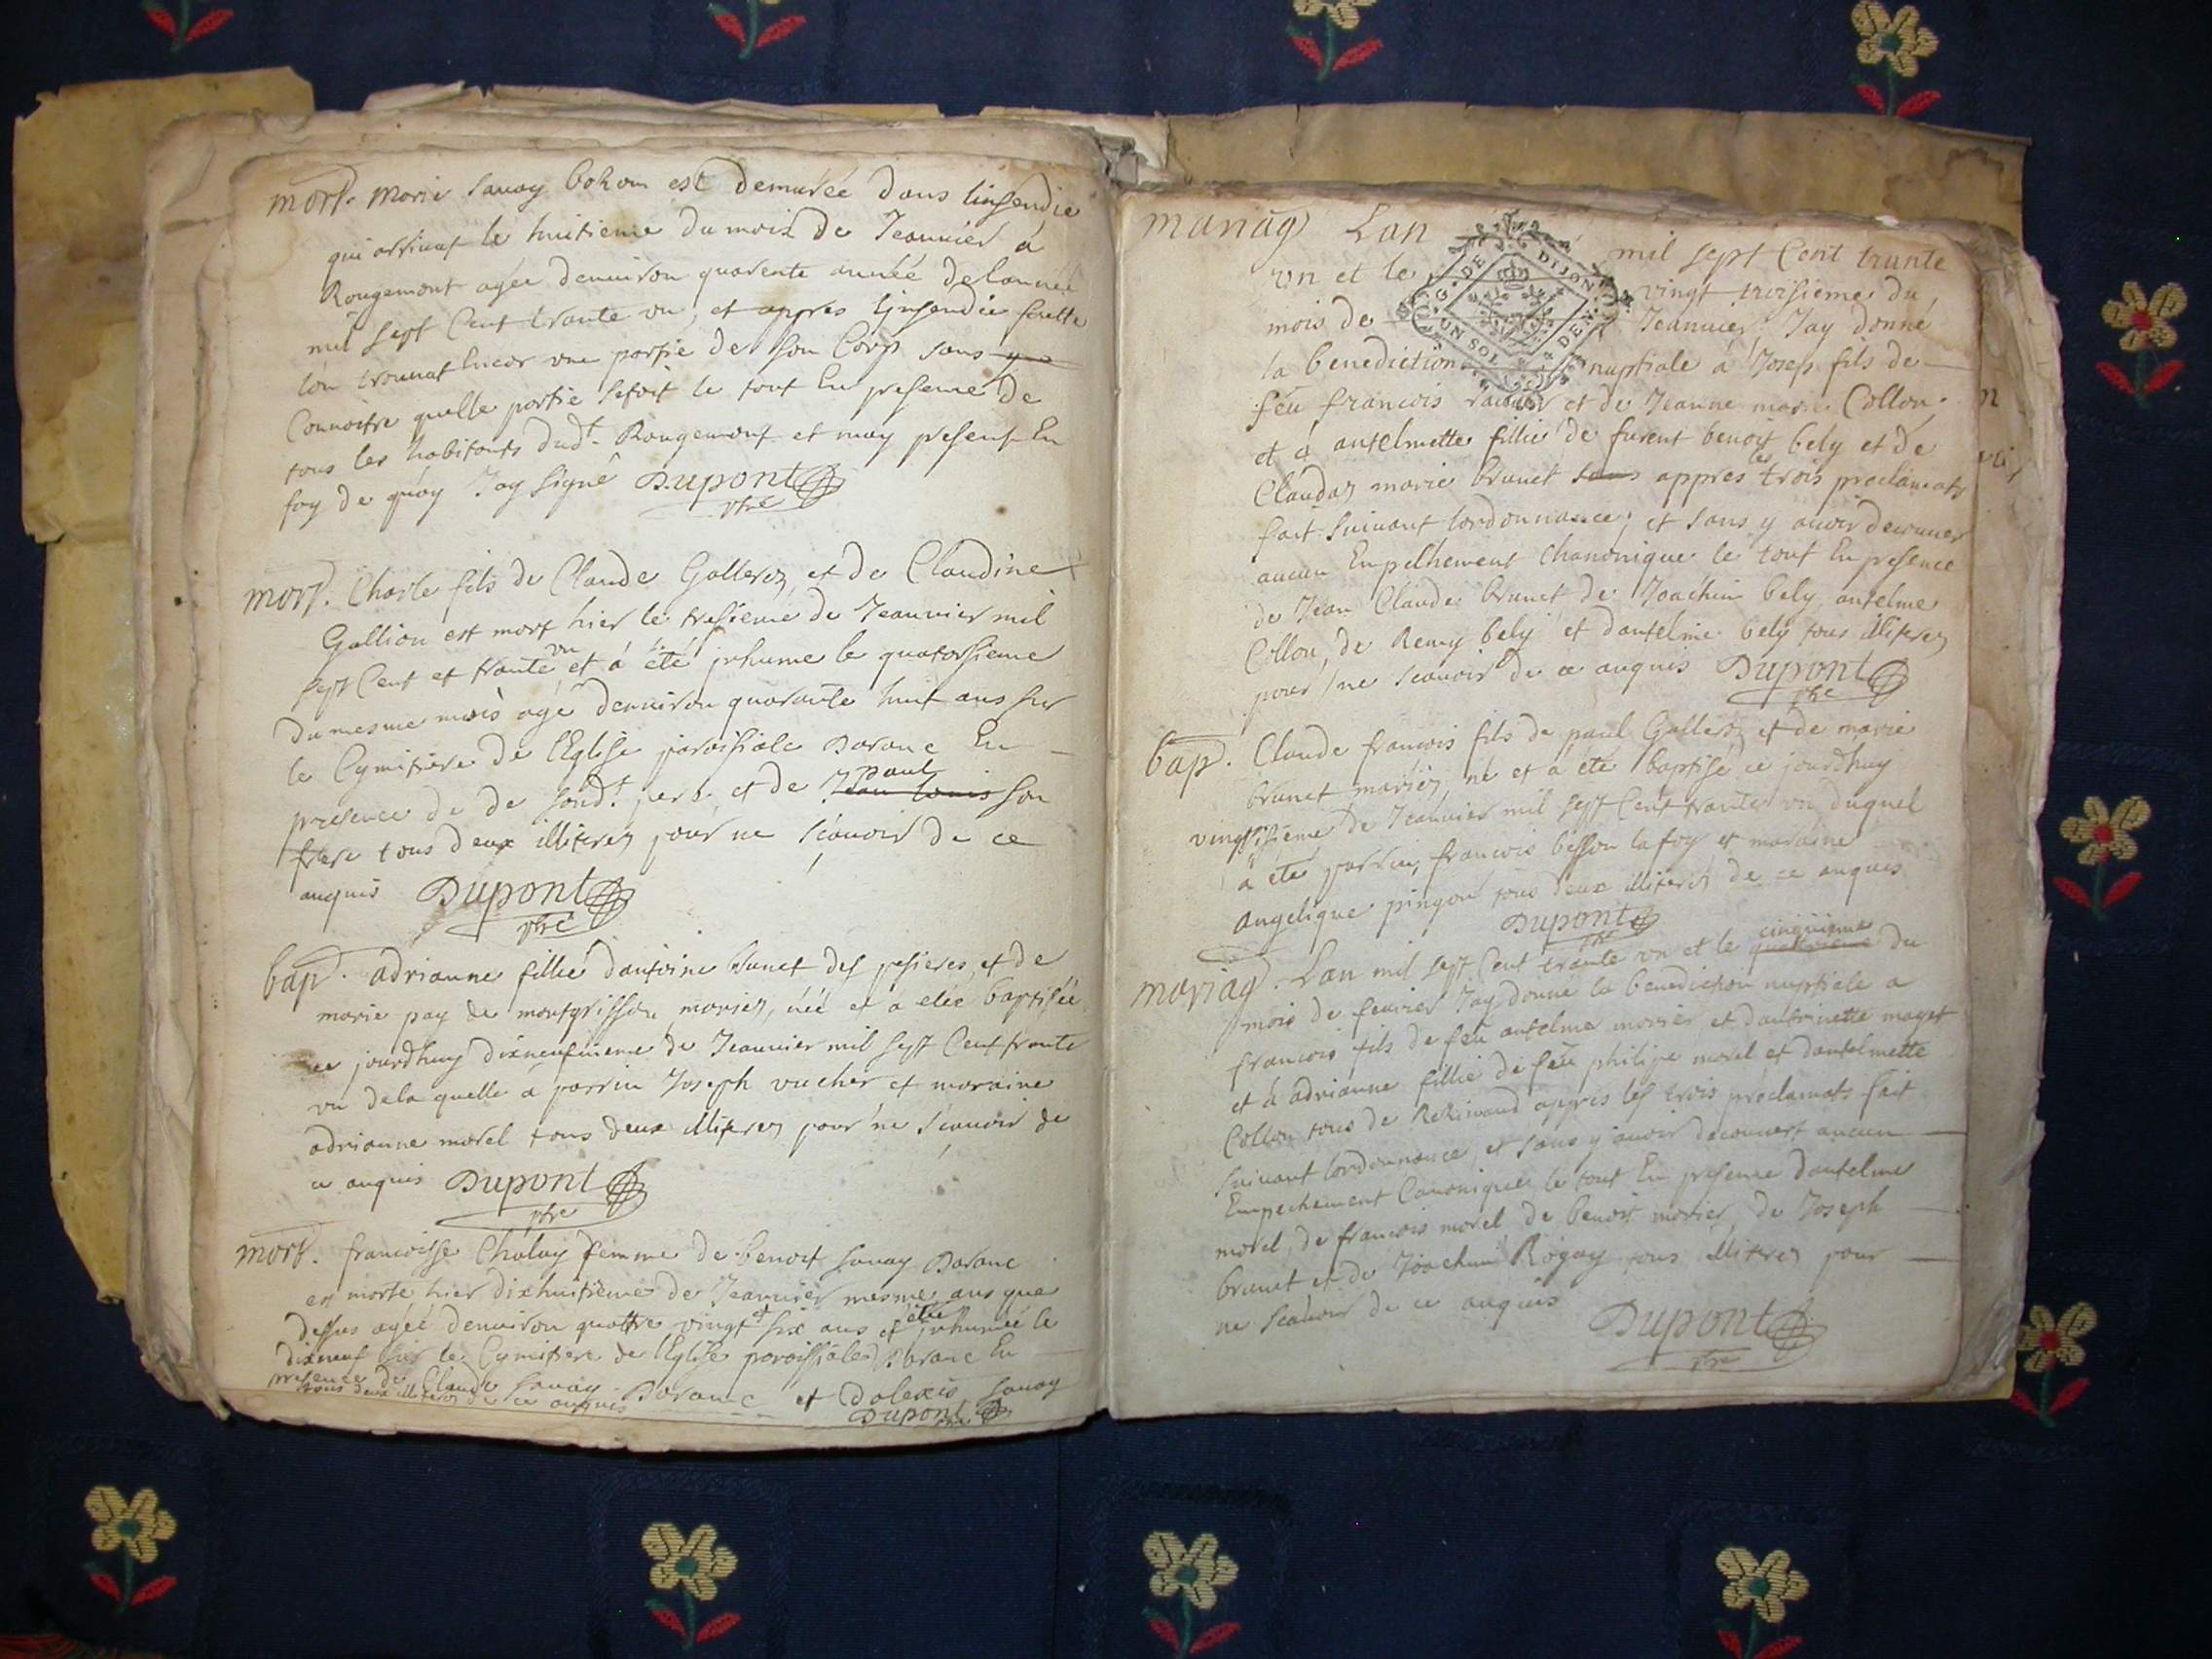 mort. Marie Savay bohom est demurée dans linsendie
qui arrivat le huitieme du mois de Jeanvier á
Rougemont agée denviron quarente année de lannée
mil sept Cent trante vn, et appres linsendie
lon trouvat Encor vne partie de son Corp sans
Connoitre quelle partie setoit le tout En presence de
tous les habitants dudt. Rougemont et moy present En
foy de quoy Jay signé Dupont
ptre
mort. Charle fils de Claude Gallerez et de Claudine
Gallion est mort hier le tresieme de Jeanvier mil
sept Cent et trante vn et á eté jnhume le quatorsieme
du mesme mois agé denviron quarante huit ans sur
le Cymitiere de lEglise paroissiale Daranc En
presence de de sondt. pere et de paul son
frere tous deux illiterez pour ne scavoir de ce
anquis Dupont
ptre
bap. adrianne fillie dantoine brunet des pesieres et de
marie pay de montgriffon mariez, néé et a etéé baptiséé
ce jourdhuy dixneufvieme de Jeanvier mil sept Cent trante
vn dela quelle á parrin Joseph vucher et maraine
adrianne morel tous deux illiterez pour ne scavoir de
ce anquis Dupont
ptre
mort. francoisse Chaley femme de benoit Savay Daranc
est morte hier dixhuitieme de Jeanvier mesme ans que
dessus agéé denviron quattre vingt et six ans et etéé jnhuméé le
dixneuf sur le Cymitiere de lEglise paroissiale Daranc En
presence de Claude Savay Daranc et dalexis Savay
tous deux illiterez de ce anquis Dupont
ptre
mariag Lan mil sept Cent trante
vn et le vingt troisieme du
mois de Jeanvier Jay donne
la benediction nuptiale á Josep fils de
feu francois et de Jeanne marie Collon
et á antelmette fillie de furent benoit bely et de
Claudaz marie brunet sans appres les trois proclamats
fait suivant lordonnance, et sans y avoir decouver
aucun Enpelhement Chanonique le tout En presence
de Jean Claude brunet de Joachim bely antelme
Collon, de Remy bely et dantelme bely tous illiterez
pour ne scavoir de ce anquis Dupont
ptre
G. DE DIJON
UN SOL DEN
bap. Claude francois fils de paul Gallerez et de marie
brunet mariez, né et á eté baptisé ce jourdhuy
vingtsisieme de Jeanvier mil sept Cent trante vn duquel
á eté parrin, francois besson lafoy et maraine
angelique pingon tous deux illiterez de ce anquis
Dupont
ptre
mariag. Lan mil sept Cent trante vn et le cinquieme du
mois de fevrier Jay donne la benediction nuptiale a
francois fils de feu antelme morier et dantoinette maget
et á adrianne fillie de feu philipe morel et dantelmette
Collon tous de Resinand appres les trois proclamats fait
suivant lordonnance, et sans y avoir decouvert aucun
Empechement Canonique le tout En presence dantelme
morel, de francois morel de benoit morier, de Joseph
brunet et de Joachim Rogay tous illiterez pour
ne scavoir de ce anquis
Dupont
ptre